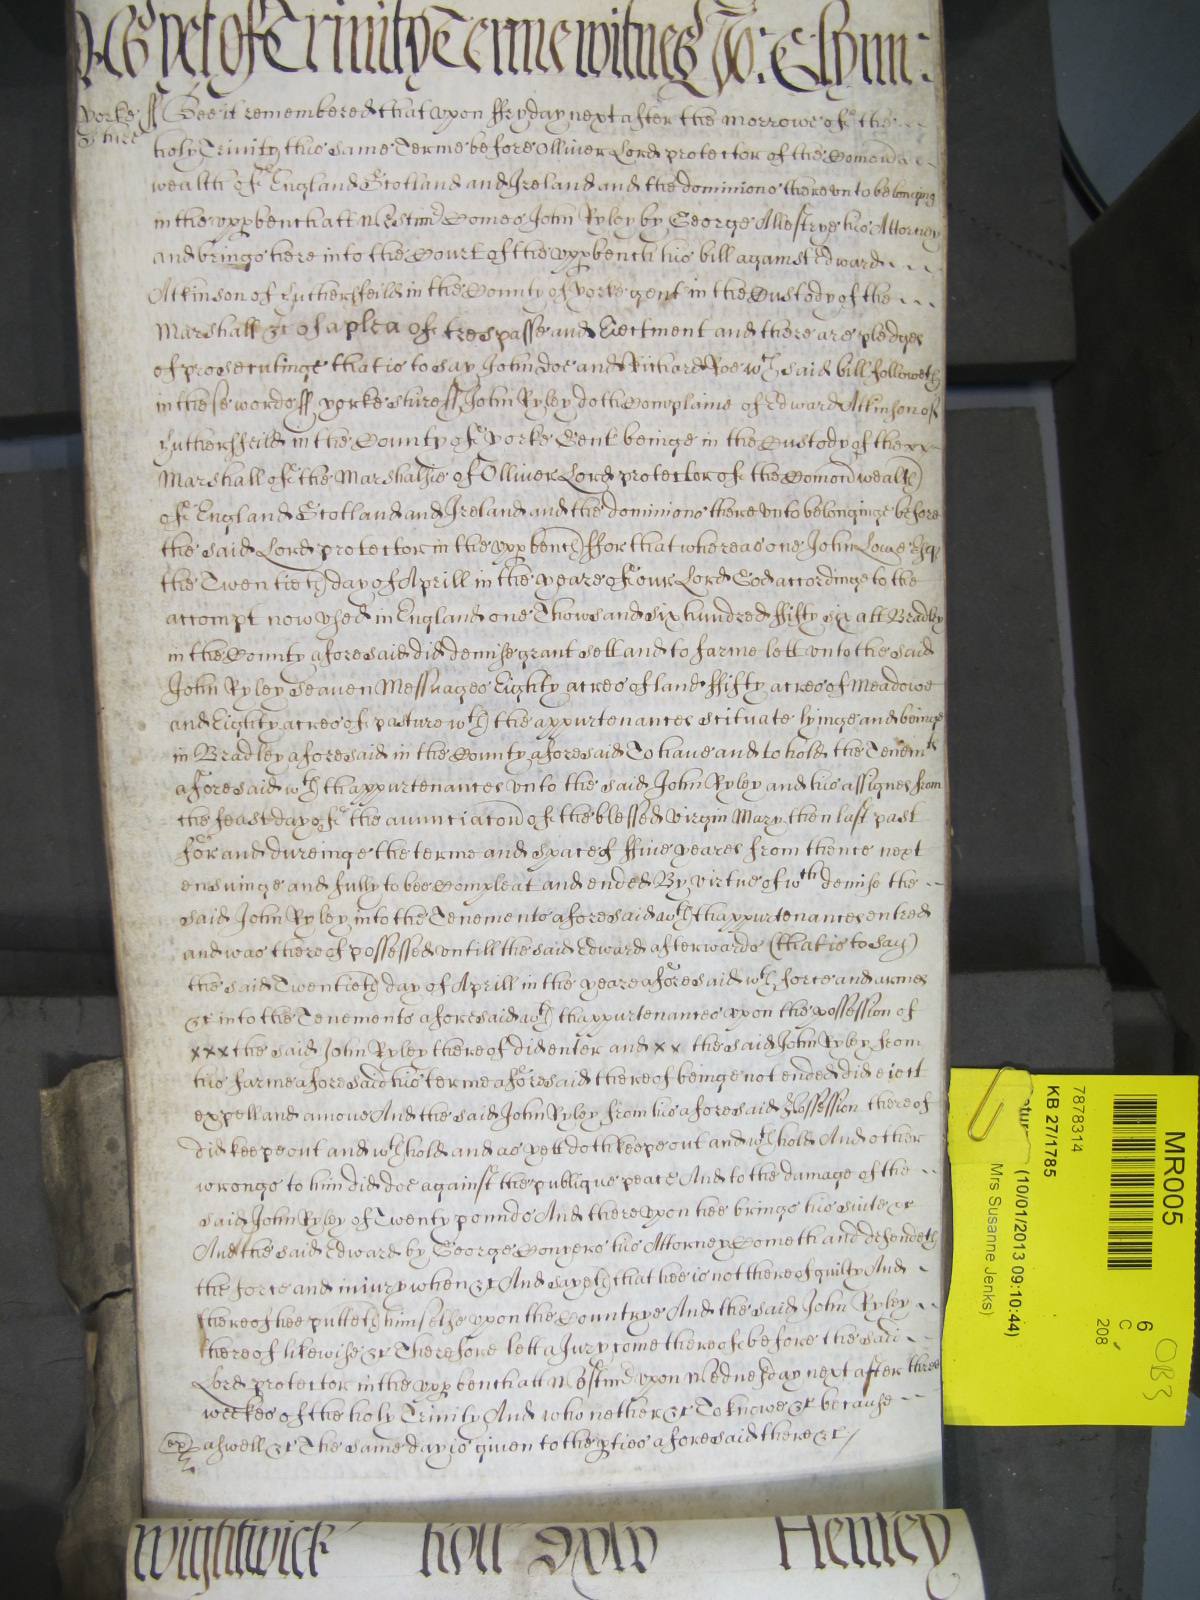 As yet of Trinity Terme witnes Jo: Glynn:
Yorke
shire
ss Bee it remembered that upon ffryday next after the morrowe of the
holy Trinity this same Terme before Olliver Lord protector of the Comon
wealth of England Scotland and Ireland and the dominions thereunto belonging
in the upp bench att Westmr Comes John Ryley by George Allestrye his Attorney
and brings here into the Court of the upp bench his bill against Edward
Atkinson of Huthersfeild in the County of yorke gent in the Custody of the
Marshall &c of a plea of trespasse and Eiectment and there are pledges
of prosecutinge that is to say John Doe and Richard Roe wch said bill followeth
in these words ss yorke shire ss John Ryley doth Complaine of Edward Atkinson of
Huthersfeild in the County of yorke Gent beinge in the Custody of the xx
Marshall of the Marshalsie of Olliver Lord protector of the Comonwealth
of England Scotland and Ireland and the dominions thereunto belonginge before
the said Lord protector in the upp bench ffor that whereas one John Lowe Esqr
the Twentieth day of Aprill in the yeare of our Lord God accordinge to the
accompt now used in England one Thowsand six hundred ffifty six att Bradley
in the County aforesaid did demise grant sett and to farme lett unto the said
John Ryley Seaven Messuages Eighty acres of land ffifty acres of Meadowe
and Eighty acres of pasture wth the appurtenances scituate lyinge and beinge
in Bradley aforesaid in the County aforesaid To have and to hold the Tenemts
aforesaid wth thappurtenances unto the said John Ryley and his assignes from
the feast day of the annunciacon of the blessed virgin Mary then last past
for and dureinge the terme and space of ffive yeares from thence next
ensuinge and fully to bee Compleat and ended By virtue of wch demise the
said John Ryley into the Tenements aforesaid wth thappurtenances entred
and was thereof possessed untill the said Edward afterwards (that is to say)
the said Twentieth day of Aprill in the yeare aforesaid wth force and armes
&c into the Tenements aforesaid wth thappurtenances upon the possession of
xxx the said John Ryley thereof did enter and xx the said John Ryley from
his farme aforesaid his terme aforesaid thereof beinge not ended did eiect
expell and amove And the said John Ryley from his aforesaid Possession thereof
did keepe out and wthhold and as yett doth keepe out and wthhold And other
wrongs to him did doe against the publique peace And to the damage of the
said John Ryley of Twenty pounds And thereupon hee brings his suite &c
And the said Edward by George Conyers his Attorney Cometh and defendeth
the force and iniury when &c And sayeth that hee is not thereof guilty And
thereof hee putteth himselfe upon the Countrye And the said John Ryley
thereof likewise &c Therefore lett a Jury come thereof before the said
Lord protector in the upp bench att Westmr upon Wednesday next after three
weekes of the holy Trinity And who nether &c To knowe &c because
exr aswell &c The same day is given to the pties aforesaid there &c
Wightwick Roll Henley
MR005
7878314
KB 27/1785
(10/01/2013 09:10:44)
Mrs Susanne Jenks)
6
C
208
OB3